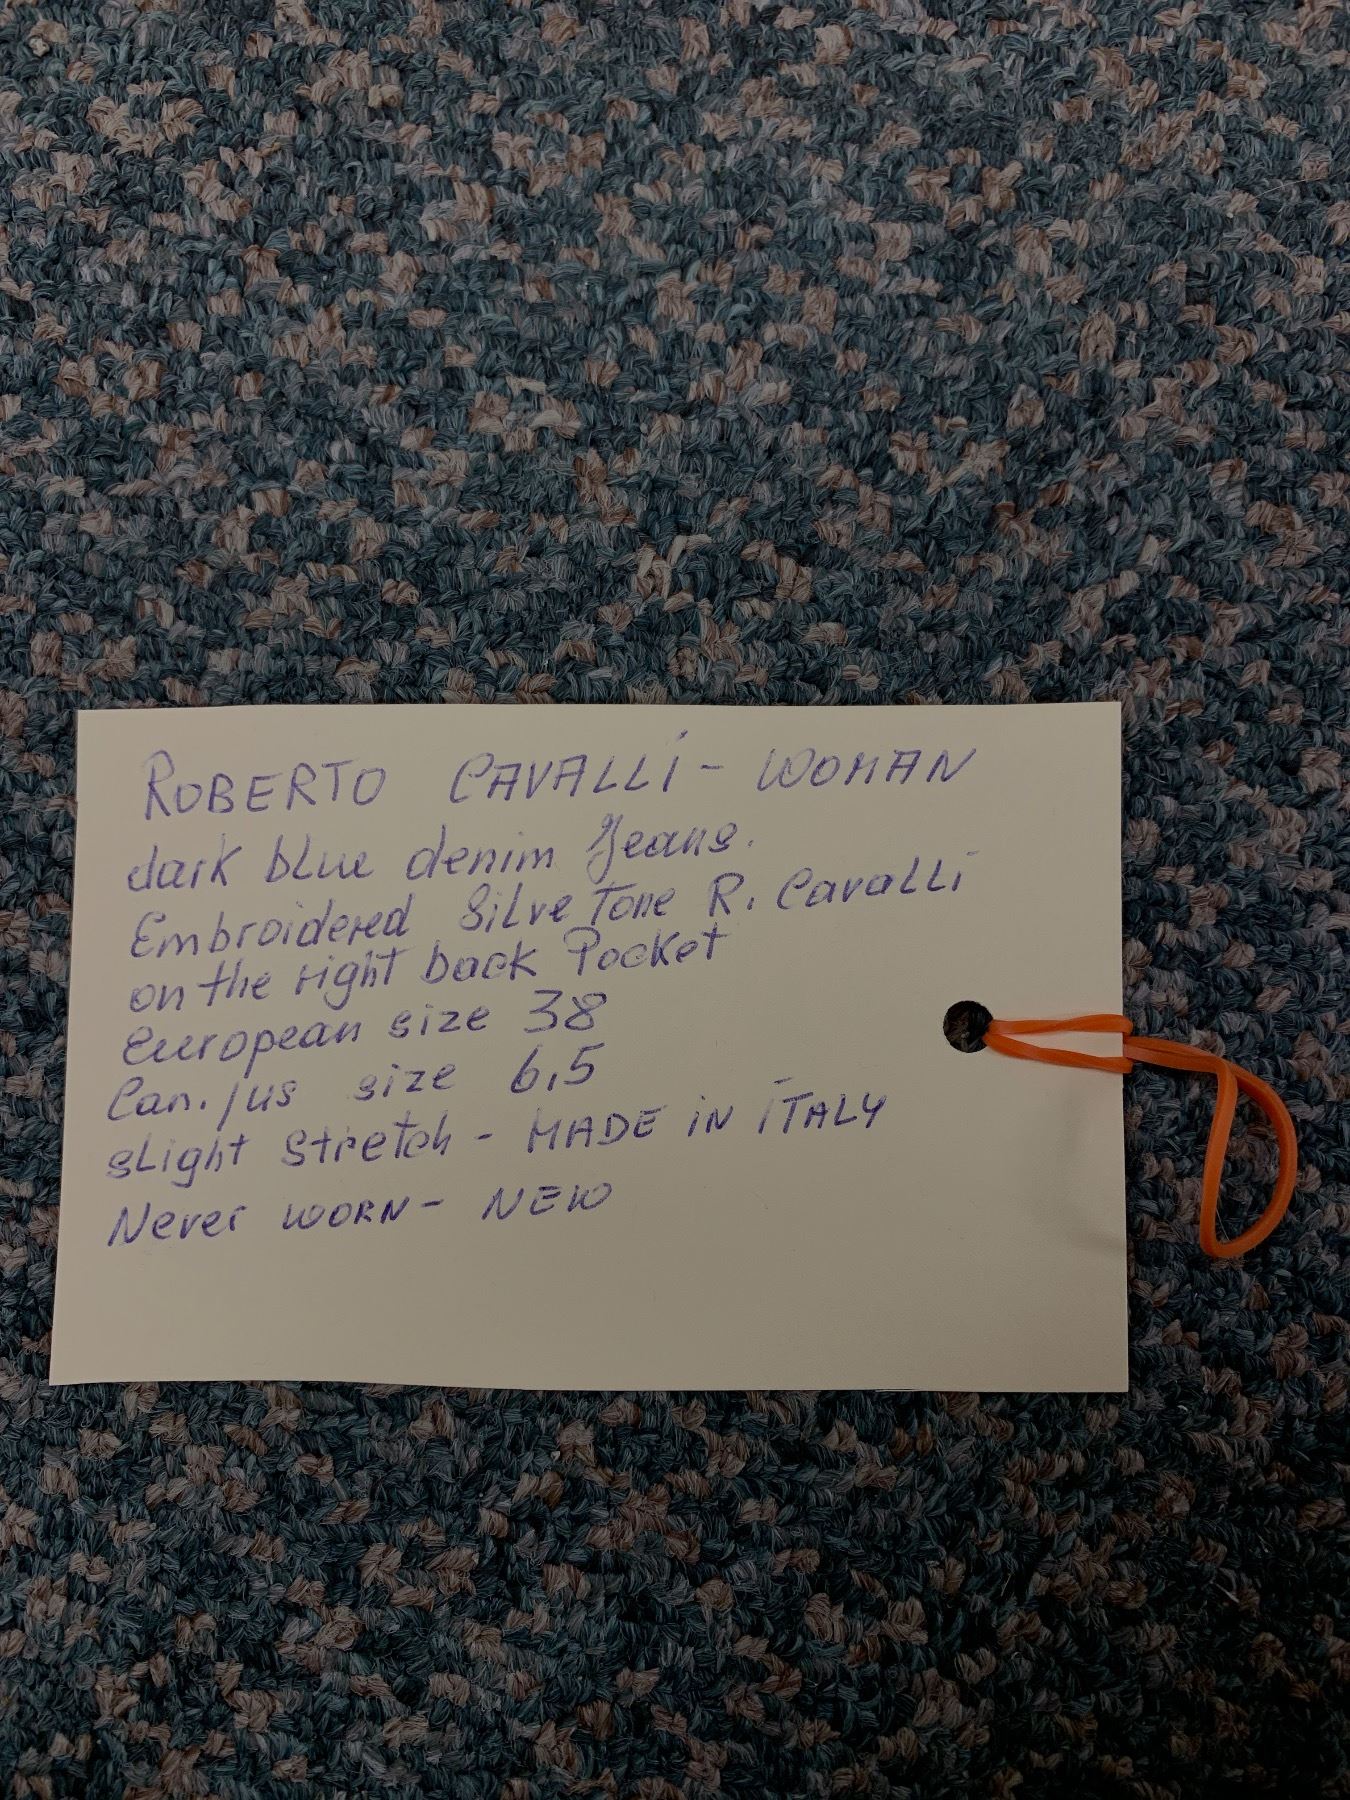 ROBERTO CAVALLi - WOMAN
dark blue denim Jeans.
Embroidered Silve Tone R. Cavalli
on the right back Pocket
European size 38
Can. / us size 6,5
slight stretch - MADE iN iTALY
Never WORN - NEW